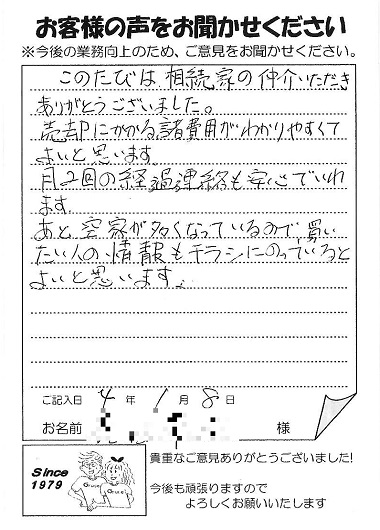 お客様の声をお聞かせください
※今後の業務向上のため、ご意見をお聞かせください。
このたびは、相続家の仲介いただき
ありがとうございました。
売却にかかる諸費用がわかりやすくて
よいと思います。
月2回の経過連絡も安心でいれ
ます。
あと、空家が多くなっているので、買い
たい人の情報もチラシにのっていると
よいと思います。
ご記入日 4 年 1 月 8 日
お名前 様
Since
1979
貴重なご意見ありがとうございました!
今後も頑張りますので
よろしくお願いいたします